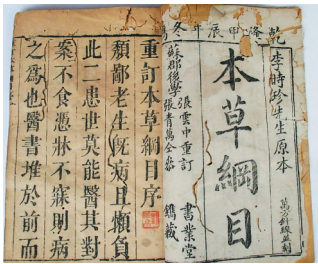 乾隆甲辰年冬
李時珍先生原本
本草綱目
張雲中重訂
張青萬仝參
蘇郡後學
書業堂
鐫藏
重訂本草綱目序
頽鄙老生旣病且懶負
此二患世莫能醫其對
案不食憑牀不寐則病
之為也醫書堆於前而